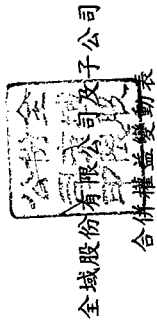 全域股份有限公司及子公司
合併權益變動表